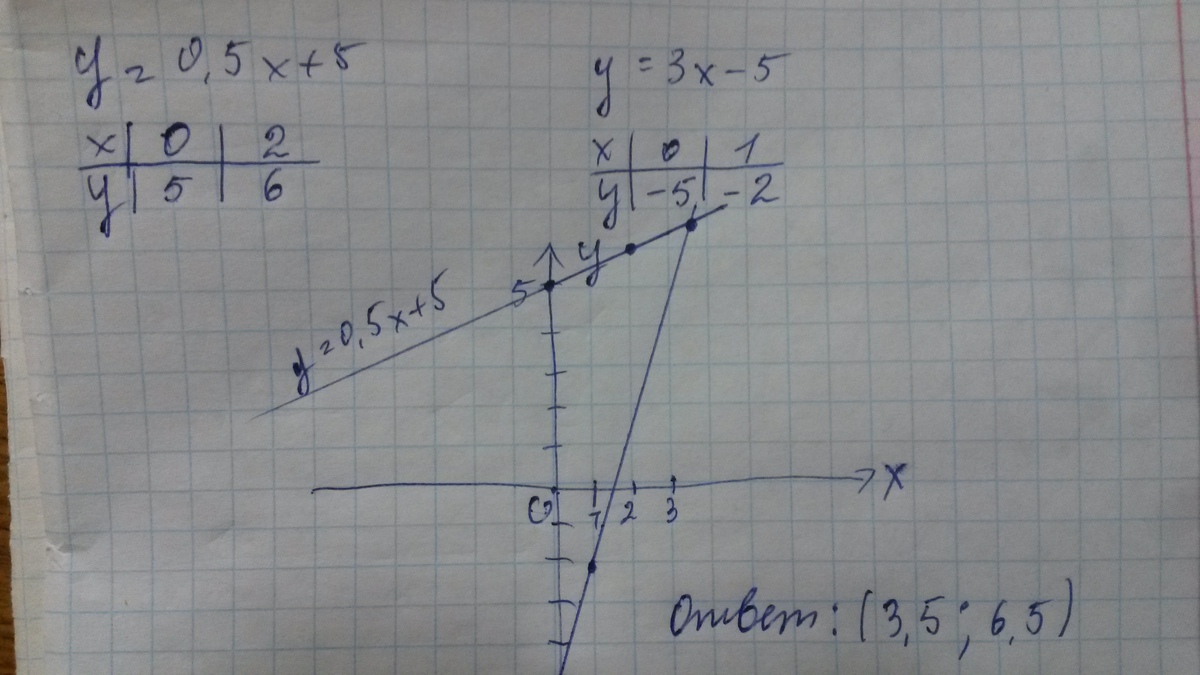 y = 0,5x+5
x | 0 | 2
y | 5 | 6
y = 3x-5
x | 0 | 1
y | -5 | -2
y
5
y=0,5x+5
x
0 1 2 3
Ответ: (3,5; 6,5)